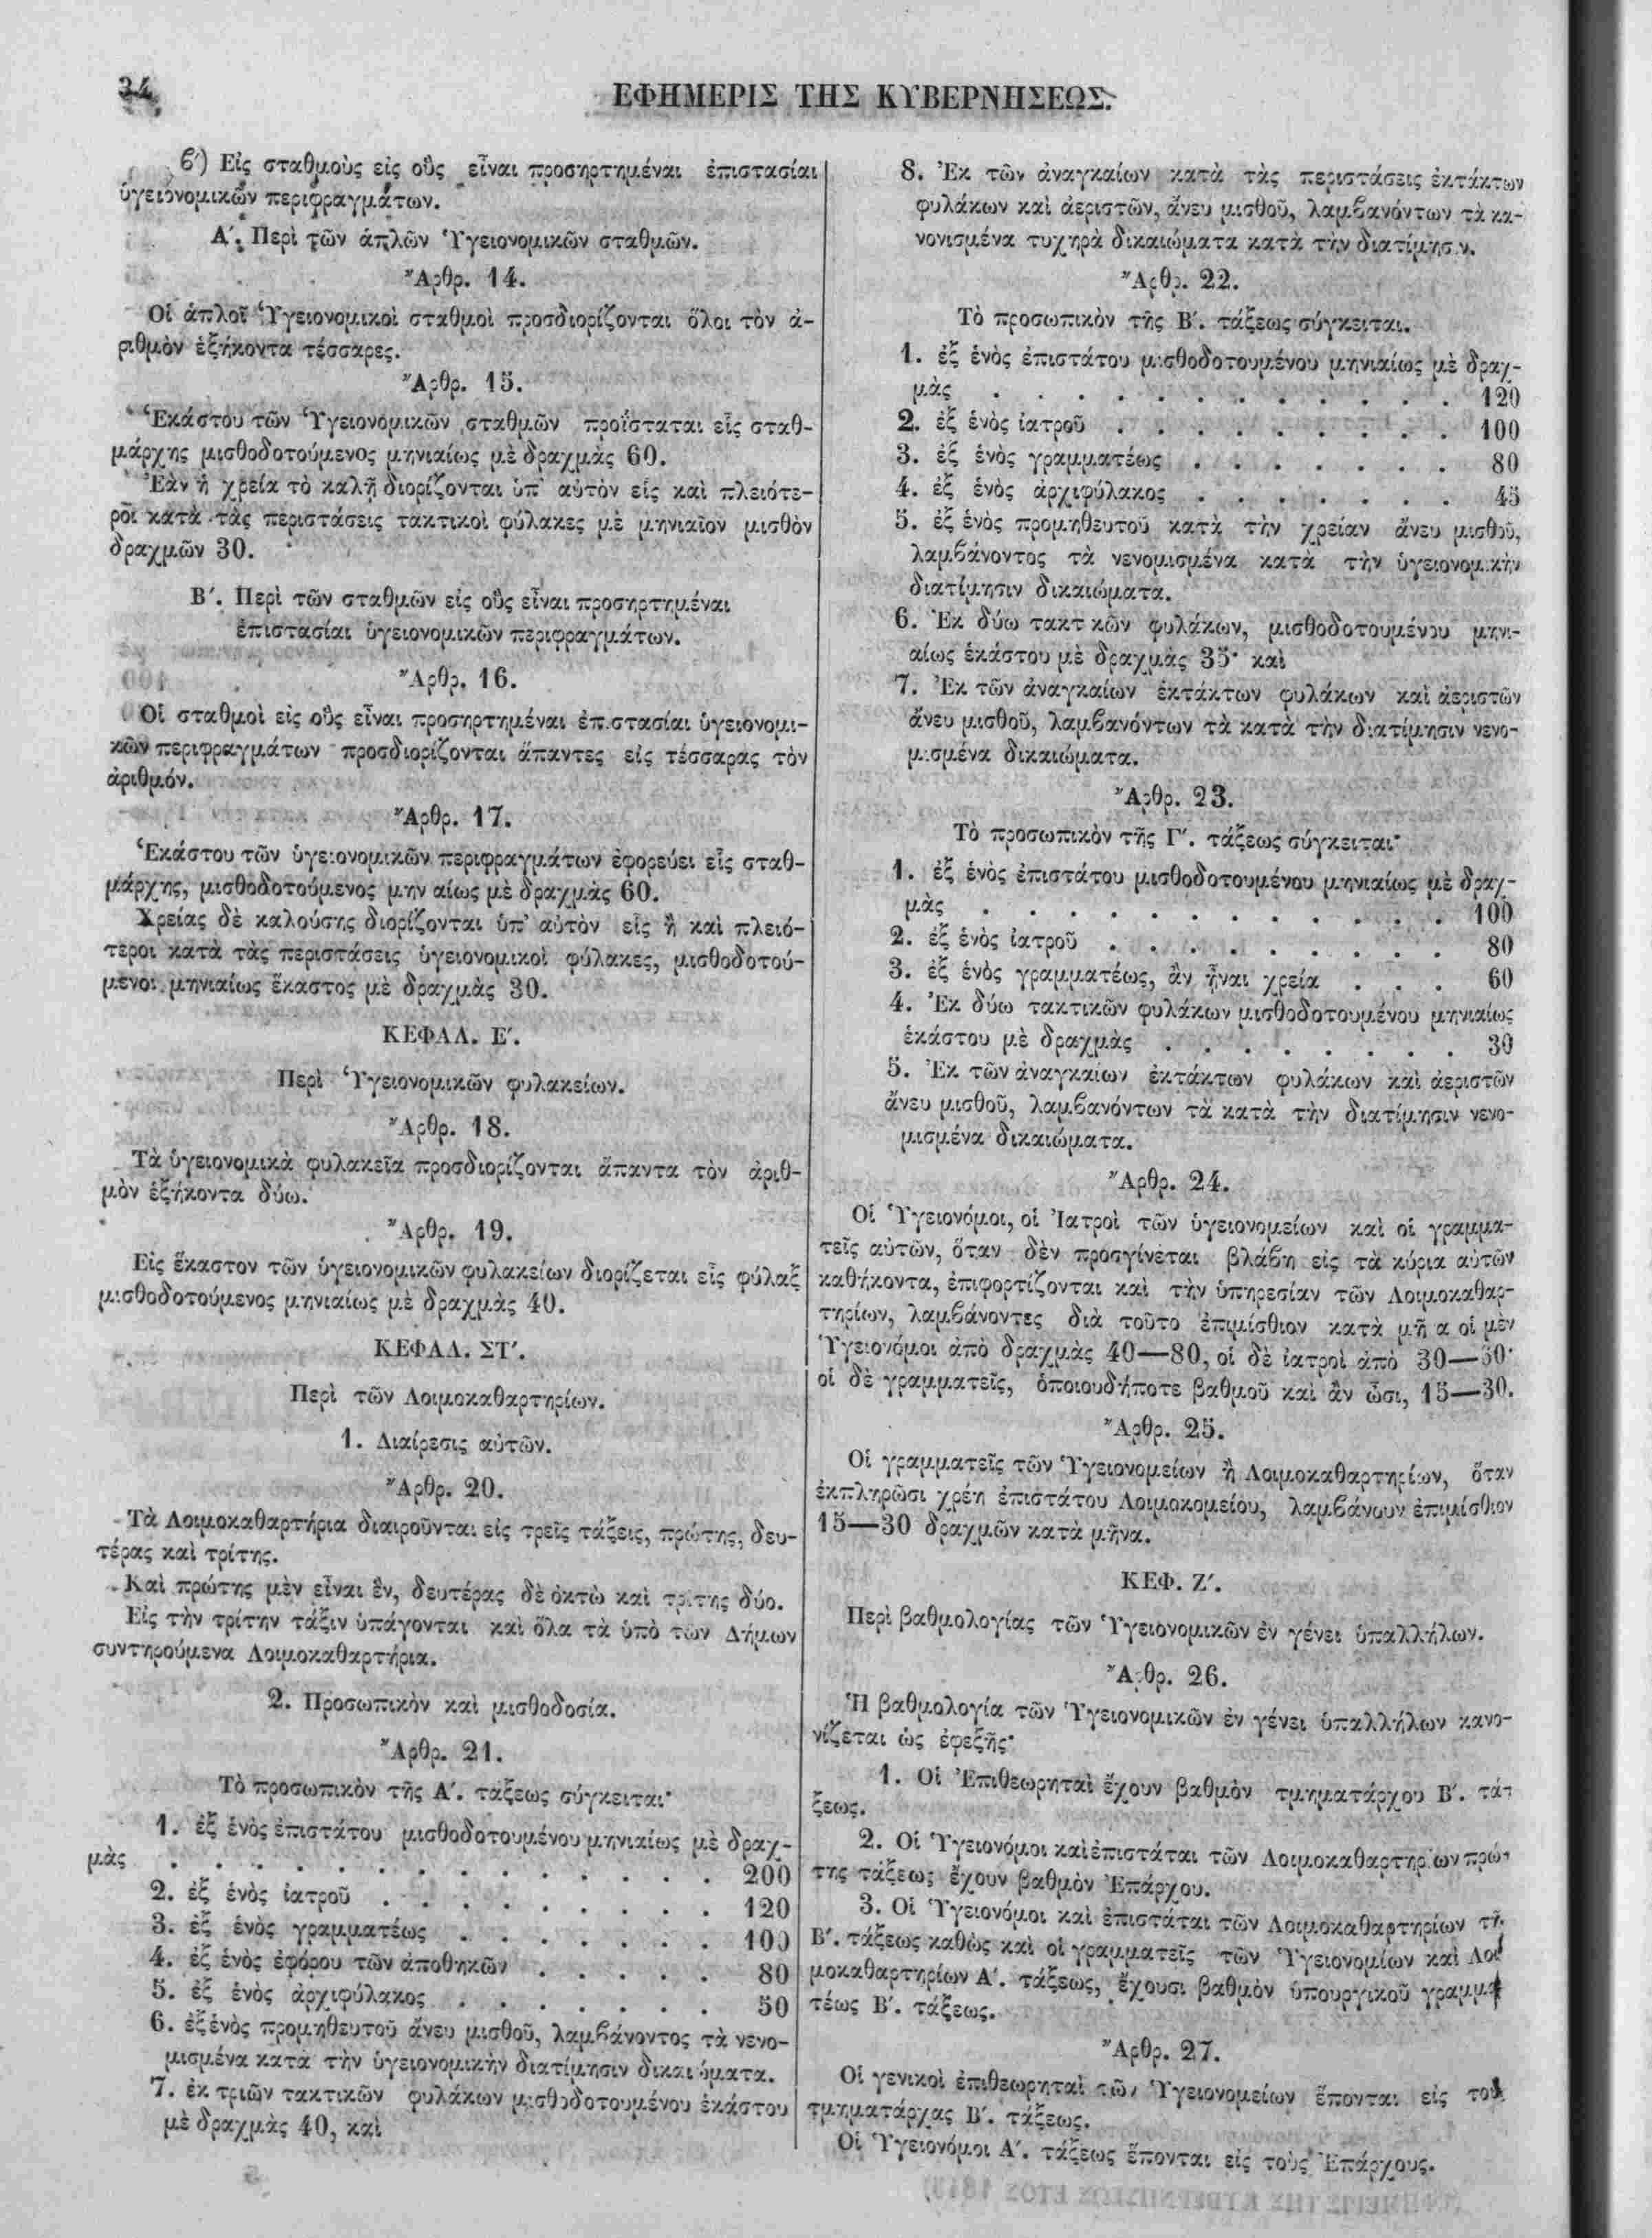 34
ΕΦΗΜΕΡΙΣ ΤΗΣ ΚΥΒΕΡΝΗΣΕΩΣ.
ϐ′) Εἰς σταθμοὺς εἰς οὓς εἶναι προσηρτημέναι ἐπιστασίαι
ὑγειονομικῶν περιφραγμάτων.
Α′. Περὶ τῶν ἁπλῶν Ὑγειονομικῶν σταθμῶν.
Ἄρθρ. 14.
Οἱ ἁπλοῖ Ὑγειονομικοὶ σταθμοὶ προσδιορίζονται ὅλοι τὸν ἀ-
ριθμὸν ἑξήκοντα τέσσαρες.
Ἄρθρ. 15.
Ἑκάστου τῶν Ὑγειονομικῶν σταθμῶν προΐσταται εἷς σταθ-
μάρχης μισθοδοτούμενος μηνιαίως μὲ δραχμὰς 60.
Ἐὰν ἡ χρεία τὸ καλῇ διορίζονται ὑπ' αὐτὸν εἷς καὶ πλειότε-
ροι κατὰ τὰς περιστάσεις τακτικοὶ φύλακες μὲ μηνιαῖον μισθὸν
δραχμῶν 30.
Β′. Περὶ τῶν σταθμῶν εἰς οὓς εἶναι προσηρτημέναι
ἐπιστασίαι ὑγειονομικῶν περιφραγμάτων.
Ἄρθρ. 16.
Οἱ σταθμοὶ εἰς οὓς εἶναι προσηρτημέναι ἐπιστασίαι ὑγειονομι-
κῶν περιφραγμάτων προσδιορίζονται ἅπαντες εἰς τέσσαρας τὸν
ἀριθμόν.
Ἄρθρ. 17.
Ἑκάστου τῶν ὑγειονομικῶν περιφραγμάτων ἐφορεύει εἷς σταθ-
μάρχης, μισθοδοτούμενος μηνιαίως μὲ δραχμὰς 60.
Χρείας δὲ καλούσης διορίζονται ὑπ' αὐτὸν εἷς ἢ καὶ πλειό-
τεροι κατὰ τὰς περιστάσεις ὑγειονομικοὶ φύλακες, μισθοδοτού-
μενοι μηνιαίως ἕκαστος μὲ δραχμὰς 30.
ΚΕΦΑΛ. Ε′.
Περὶ Ὑγειονομικῶν φυλακείων.
Ἄρθρ. 18.
Τὰ ὑγειονομικὰ φυλακεῖα προσδιορίζονται ἅπαντα τὸν ἀριθ-
μὸν ἑξήκοντα δύω.
Ἄρθρ. 19.
Εἰς ἕκαστον τῶν ὑγειονομικῶν φυλακείων διορίζεται εἷς φύλαξ
μισθοδοτούμενος μηνιαίως μὲ δραχμὰς 40.
ΚΕΦΑΛ. ΣΤ′.
Περὶ τῶν Λοιμοκαθαρτηρίων.
1. Διαίρεσις αὐτῶν.
Ἄρθρ. 20.
Τὰ Λοιμοκαθαρτήρια διαιροῦνται εἰς τρεῖς τάξεις, πρώτης, δευ-
τέρας καὶ τρίτης.
Καὶ πρώτης μὲν εἶναι ἓν, δευτέρας δὲ ὀκτὼ καὶ τρίτης δύο.
Εἰς τὴν τρίτην τάξιν ὑπάγονται καὶ ὅλα τὰ ὑπὸ τῶν Δήμων
συντηρούμενα Λοιμοκαθαρτήρια.
2. Προσωπικὸν καὶ μισθοδοσία.
Ἄρθρ. 21.
Τὸ προσωπικὸν τῆς Α′. τάξεως σύγκειται·
1. ἐξ ἑνὸς ἐπιστάτου μισθοδοτουμένου μηνιαίως μὲ δραχ-
μὰς . . . . . . . . . . . . . 200
2. ἐξ ἑνὸς ἰατροῦ . . . . . . . . . 120
3. ἐξ ἑνὸς γραμματέως . . . . . . . 100
4. ἐξ ἑνὸς ἐφόρου τῶν ἀποθηκῶν . . . . . 80
5. ἐξ ἑνὸς ἀρχιφύλακος . . . . . . . 50
6. ἐξ ἑνὸς προμηθευτοῦ ἄνευ μισθοῦ, λαμβάνοντος τὰ νενο-
μισμένα κατὰ τὴν ὑγειονομικὴν διατίμησιν δικαιώματα.
7. ἐκ τριῶν τακτικῶν φυλάκων μισθοδοτουμένου ἑκάστου
μὲ δραχμὰς 40, καὶ
8. Ἐκ τῶν ἀναγκαίων κατὰ τὰς περιστάσεις ἐκτάκτων
φυλάκων καὶ ἀεριστῶν, ἄνευ μισθοῦ, λαμβανόντων τὰ κα-
νονισμένα τυχηρὰ δικαιώματα κατὰ τὴν διατίμησιν.
Ἄρθρ. 22.
Τὸ προσωπικὸν τῆς Β′. τάξεως σύγκειται.
1. ἐξ ἑνὸς ἐπιστάτου μισθοδοτουμένου μηνιαίως μὲ δραχ-
μὰς . . . . . . . . . . . . 120
2. ἐξ ἑνὸς ἰατροῦ . . . . . . . . . 100
3. ἐξ ἑνὸς γραμματέως . . . . . . . 80
4. ἐξ ἑνὸς ἀρχιφύλακος . . . . . . . 45
5. ἐξ ἑνὸς προμηθευτοῦ κατὰ τὴν χρείαν ἄνευ μισθοῦ,
λαμβάνοντος τὰ νενομισμένα κατὰ τὴν ὑγειονομικὴν
διατίμησιν δικαιώματα.
6. Ἐκ δύω τακτικῶν φυλάκων, μισθοδοτουμένου μηνι-
αίως ἑκάστου μὲ δραχμὰς 35· καὶ
7. Ἐκ τῶν ἀναγκαίων ἐκτάκτων φυλάκων καὶ ἀεριστῶν
ἄνευ μισθοῦ, λαμβανόντων τὰ κατὰ τὴν διατίμησιν νενο-
μισμένα δικαιώματα.
Ἄρθρ. 23.
Τὸ προσωπικὸν τῆς Γ′. τάξεως σύγκειται·
1. ἐξ ἑνὸς ἐπιστάτου μισθοδοτουμένου μηνιαίως μὲ δραχ-
μὰς . . . . . . . . . . . . 100
2. ἐξ ἑνὸς ἰατροῦ . . . . . . . . . 80
3. ἐξ ἑνὸς γραμματέως, ἂν ᾖναι χρεία . . . 60
4. Ἐκ δύω τακτικῶν φυλάκων μισθοδοτουμένου μηνιαίως
ἑκάστου μὲ δραχμὰς . . . . . . . . 30
5. Ἐκ τῶν ἀναγκαίων ἐκτάκτων φυλάκων καὶ ἀεριστῶν
ἄνευ μισθοῦ, λαμβανόντων τὰ κατὰ τὴν διατίμησιν νενο-
μισμένα δικαιώματα.
Ἄρθρ. 24.
Οἱ Ὑγειονόμοι, οἱ Ἰατροὶ τῶν ὑγειονομείων καὶ οἱ γραμμα-
τεῖς αὐτῶν, ὅταν δὲν προσγίνεται βλάβη εἰς τὰ κύρια αὐτῶν
καθήκοντα, ἐπιφορτίζονται καὶ τὴν ὑπηρεσίαν τῶν Λοιμοκαθαρ-
τηρίων, λαμβάνοντες διὰ τοῦτο ἐπιμίσθιον κατὰ μῆ α οἱ μὲν
Ὑγειονόμοι ἀπὸ δραχμὰς 40—80, οἱ δὲ ἰατροὶ ἀπὸ 30—50·
οἱ δὲ γραμματεῖς, ὁποιουδήποτε βαθμοῦ καὶ ἂν ὦσι, 15—30.
Ἄρθρ. 25.
Οἱ γραμματεῖς τῶν Ὑγειονομείων ἢ Λοιμοκαθαρτηρίων, ὅταν
ἐκπληρῶσι χρέη ἐπιστάτου Λοιμοκομείου, λαμβάνουν ἐπιμίσθιον
15—30 δραχμῶν κατὰ μῆνα.
ΚΕΦ. Ζ′.
Περὶ βαθμολογίας τῶν Ὑγειονομικῶν ἐν γένει ὑπαλλήλων.
Ἄρθρ. 26.
Ἡ βαθμολογία τῶν Ὑγειονομικῶν ἐν γένει ὑπαλλήλων κανο-
νίζεται ὡς ἐφεξῆς·
1. Οἱ Ἐπιθεωρηταὶ ἔχουν βαθμὸν τμηματάρχου Β′. τά-
ξεως.
2. Οἱ Ὑγειονόμοι καὶ ἐπιστάται τῶν Λοιμοκαθαρτηρίων πρώ-
της τάξεως ἔχουν βαθμὸν Ἐπάρχου.
3. Οἱ Ὑγειονόμοι καὶ ἐπιστάται τῶν Λοιμοκαθαρτηρίων τῆ
Β′. τάξεως καθὼς καὶ οἱ γραμματεῖς τῶν Ὑγειονομίων καὶ Λοι
μοκαθαρτηρίων Α′. τάξεως, ἔχουσι βαθμὸν ὑπουργικοῦ γραμμα
τέως Β′. τάξεως.
Ἄρθρ. 27.
Οἱ γενικοὶ ἐπιθεωρηταὶ τῶν Ὑγειονομείων ἕπονται εἰς τοὺς
τμηματάρχας Β′. τάξεως.
Οἱ Ὑγειονόμοι Α′. τάξεως ἕπονται εἰς τοὺς Ἐπάρχους.